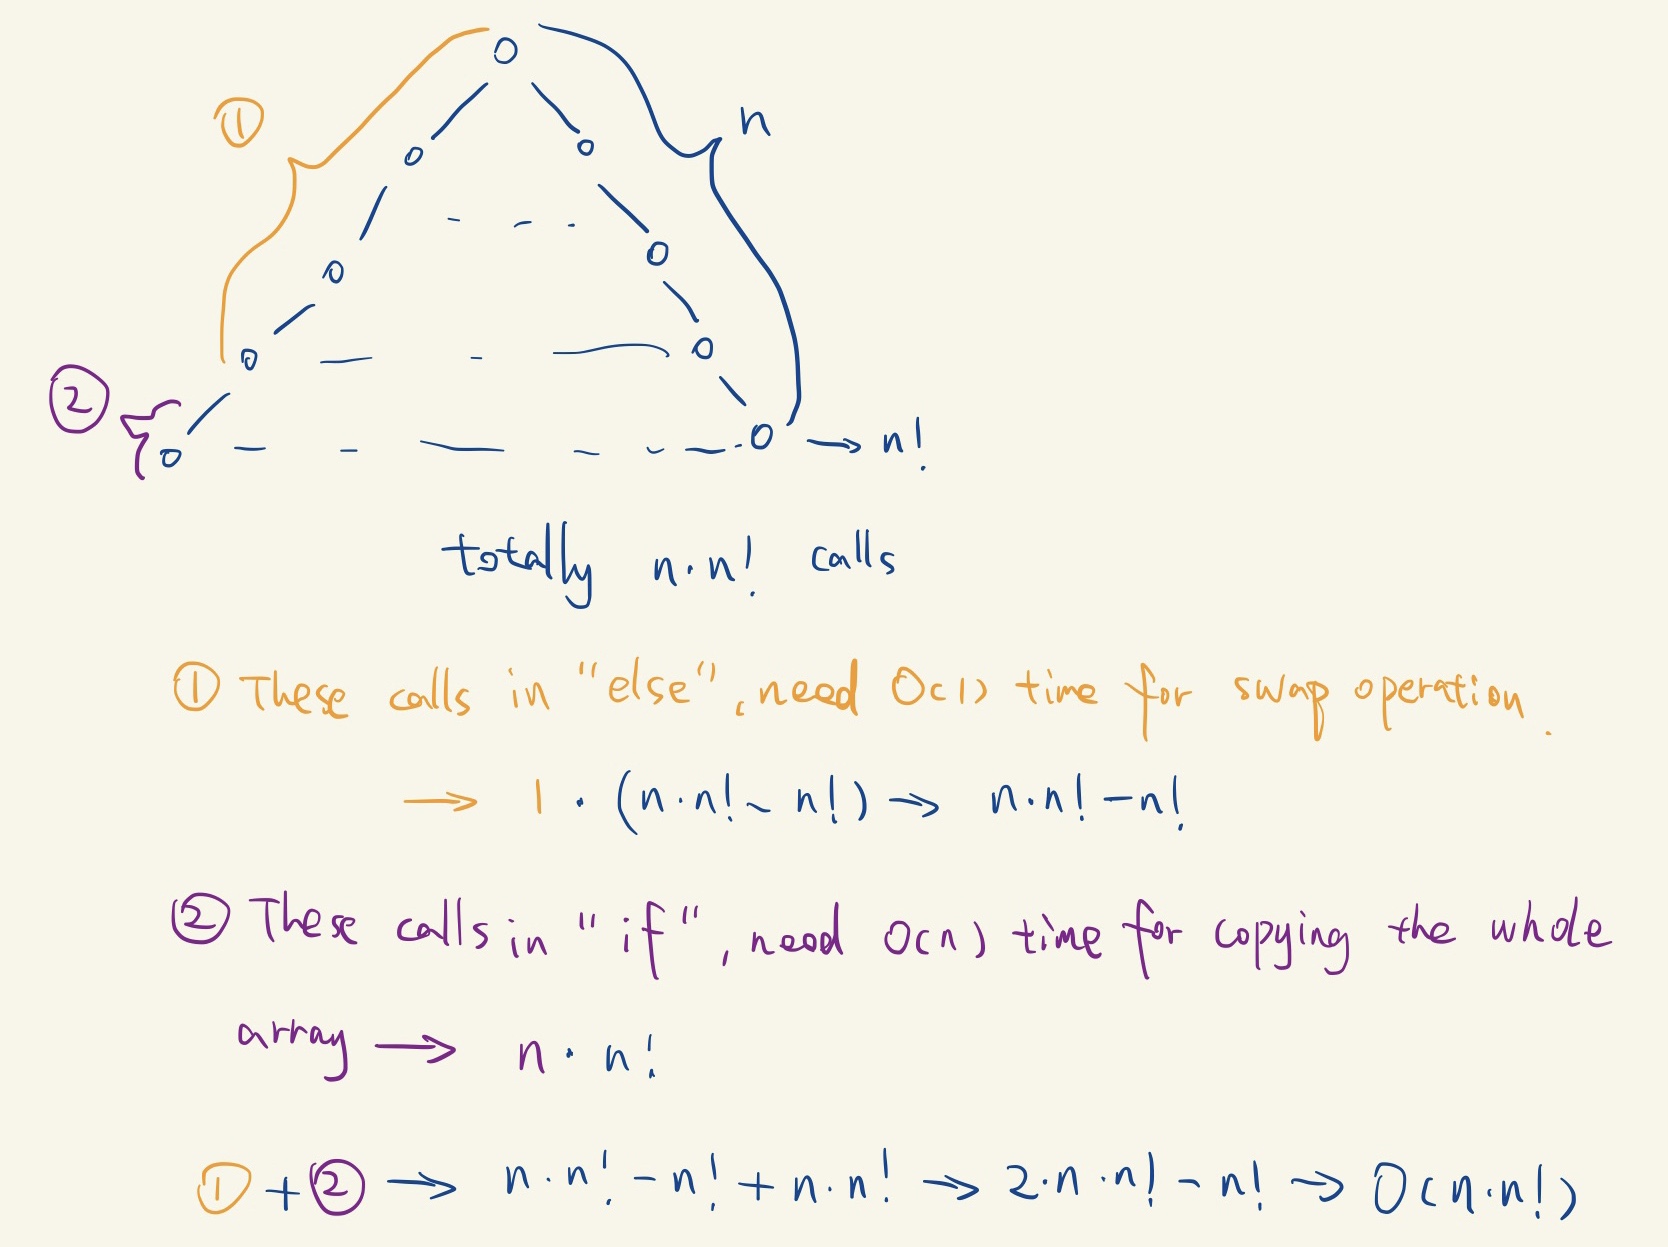 ①
n
②
→ n!
totally n·n! calls
① These calls in "else", need O(1) time for swap operation.
→ 1 · (n·n! - n!) → n·n! - n!
② These calls in "if", need O(n) time for copying the whole
array → n · n!
① + ② → n·n! - n! + n·n! → 2·n·n! - n! → O(n·n!)